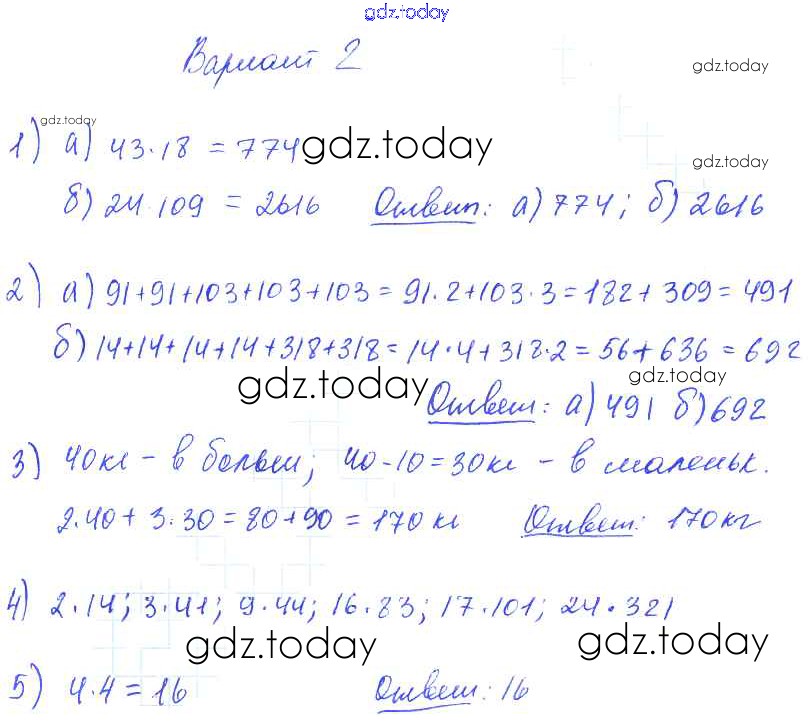 gdz.today
Вариант 2
gdz.today
gdz.today
1) а) 43·18 = 774
gdz.today
gdz.today
б) 24·109 = 2616 Ответ: а) 774; б) 2616
2) а) 91+91+103+103+103 = 91·2+103·3 = 182+309 = 491
б) 14+14+14+14+318+318 = 14·4+318·2 = 56+636 = 692
gdz.today
gdz.today
Ответ: а) 491 б) 692
3) 40кг – в больш; 40-10=30кг – в маленьк.
2·40+3·30=80+90=170 кг Ответ: 170кг
4) 2·14; 3·41; 9·44; 16·83; 17·101; 24·321
gdz.today
gdz.today
5) 4·4=16 Ответ: 16